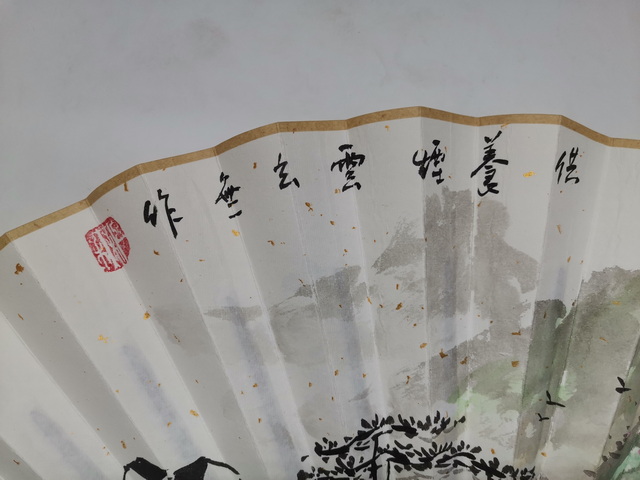 供養煙雲玄無作